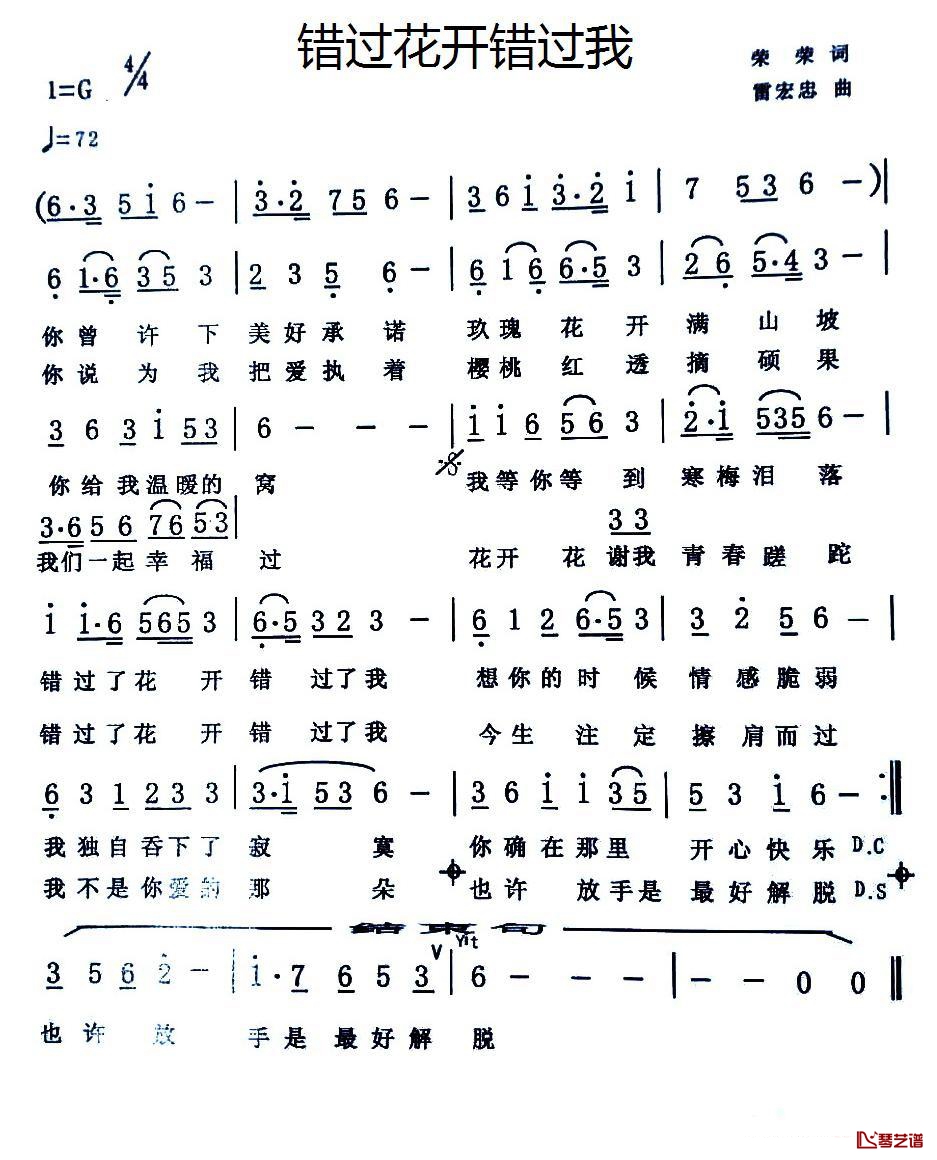 错过花开错过我
荣 荣 词
1=G 4/4
雷宏忠 曲
♩=72
(6·3 5i 6 - | 3·2 75 6 - | 3 6 i 3·2 i | 7 53 6 - )|
6 1·6 35 3 | 2 3 5 6 - | 6 1 6 6·5 3 | 26 5·4 3 - |
你曾 许 下 美好承 诺 玫瑰 花 开 满 山 坡
你说 为 我 把爱执 着 樱桃 红 透 摘 硕 果
3 6 3 i 53 | 6 - - - | i i 6 56 3 | 2·i 535 6 - |
你给我温暖的 窝 我等你等 到 寒梅泪 落
3·6 56 76 53 | 33
我们一起幸 福 过 花开 花 谢我 青春蹉 跎
i i·6 565 3 | 6·5 323 - | 6 1 2 6·5 3 | 3 2 5 6 - |
错过了花 开 错 过了我 想你的时 候 情 感脆弱
错过了花 开 错 过了我 今生 注 定 擦 肩而过
6 3 1 233 3 | 3·i 53 6 - | 3 6 i i 35 | 5 3 i 6 - :|
我独自吞下了 寂 寞 你确在那里 开心快乐 D.C
我不是你爱的 那 朵 也许 放手是 最好解脱 D.S
结束句
V Yit
3 5 6 2 - | i·7 6 5 3 | 6 - - - | - - 0 0 ||
也许 放 手是 最好解 脱
琴艺谱